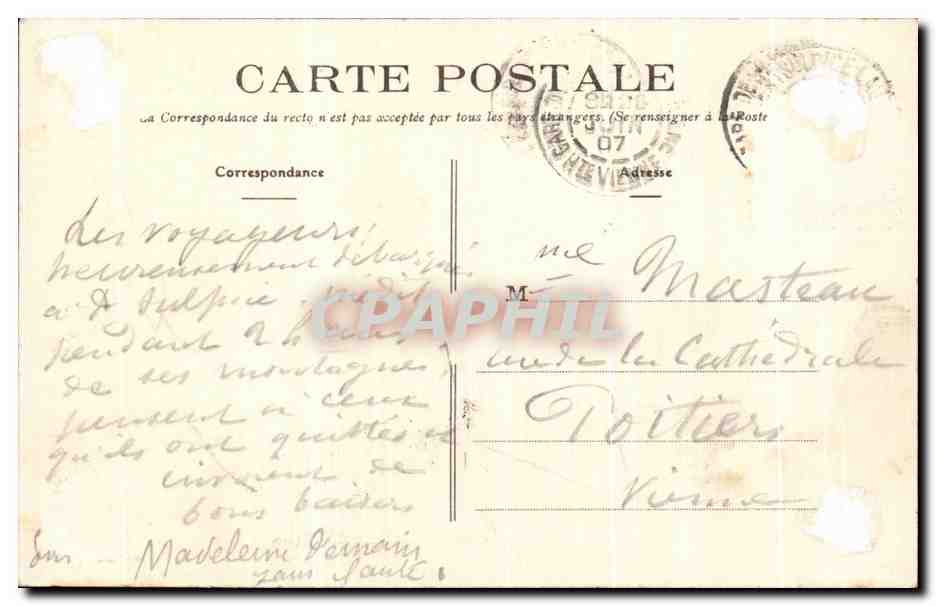 CARTE POSTALE
La Correspondance du recto n'est pas acceptée par tous les pays étrangers. (Se renseigner à la Poste
JUIN
07
GARE
HTE VIENNE
Correspondance
Adresse
Les voyageurs,
heureusement débarqués
à St Sulpice
pendant 2 heures
de ses montagnes,
pensent à ceux
qu'ils ont quittés et
envoient de
bons baisers
Madeleine Demain
sans faute.
M me Masteau
rue de la Cathédrale
Poitiers
Vienne
CPAPHIL